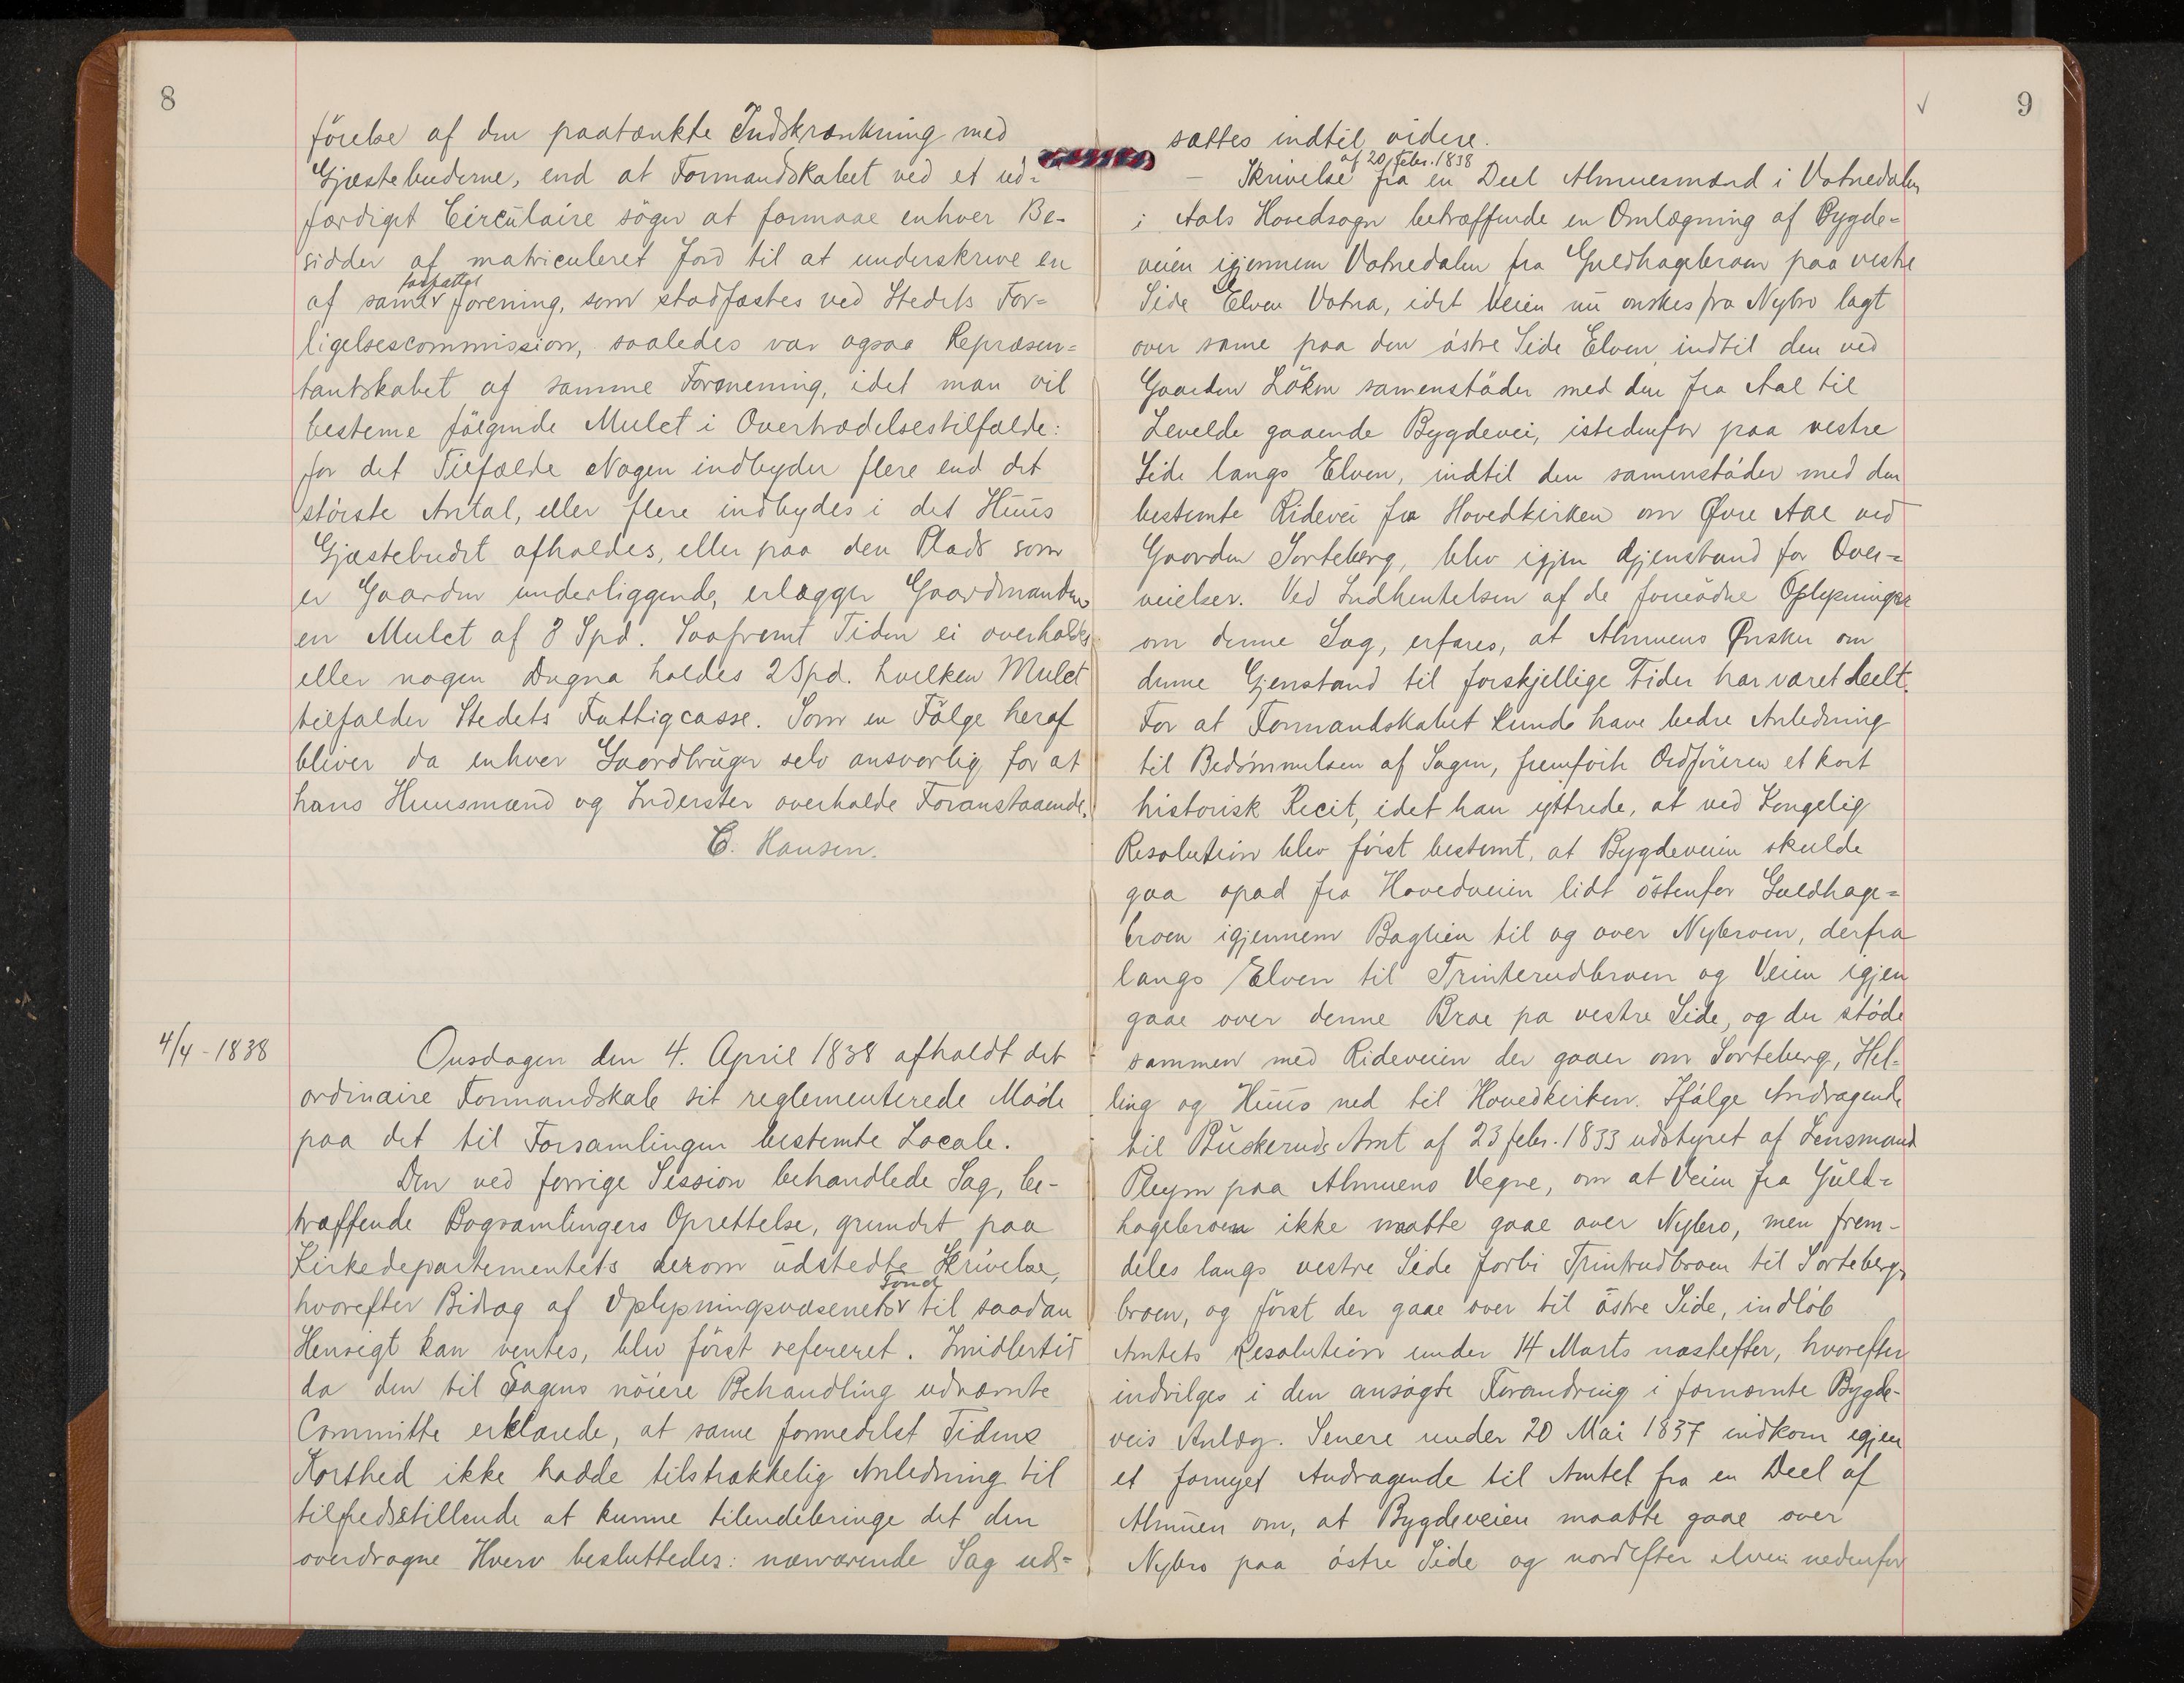 8
förelse af den paatænkte Indskrænkning med
Gjæstebuderne, end at Formandskabet ved et ud-
færdiget Circulaire söger at formaae enhver Be-
sidder af matriculeret Jord til at underskrive en
af samme forfattet forening, som stadfæstes ved Stedets For-
ligelsescommission, saaledes var ogsaa Repræsen-
tantskabet af samme Formening, idet man vil
besteme fölgende Mulct i Overtrædelsestilfælde:
for det Tilfælde Nogen indbyder flere end det
störste Antal, eller flere indbydes i det Huus
Gjæstebudet afholdes, eller paa den Plads som
er Gaarden underliggende, erlægger Gaardmanden
en Mulct af 3 Spd. Saafremt Tiden ei overholdes
eller nogen Dugna holdes 2 Spd. hvilken Mulct
tilfalder Stedets Fattigcasse. Som en Fölge heraf
bliver da enhver Gaardbruger selv ansvarlig for at
hans Huusmænd og Inderster overholde Foranstaaende.
C. Hansen.
4/4-1838
Onsdagen den 4. April 1838 afholdt det
ordinaire Formandskab sit reglementerede Möde
paa det til Forsamlingen bestemte Locale.
Den ved forrige Session behandlede Sag, be-
træffende Bogsamlingers Oprettelse, grundet paa
Kirkedepartementets derom udstedte Skrivelse,
hvorefter Bidrag af Oplysningsvæsenets Fond til saadan
Hensigt kan ventes, blev först refereret. Imidlertid
da den til Sagens nöiere Behandling udnævnte
Committe erklærede, at same formedelst Tidens
Korthed ikke hadde tilstrækkelig Anledning til
tilfredsstillende at kunne tilendebringe det den
overdragne Hverv besluttedes: nærværende Sag ud-
9
sættes indtil videre.
- Skrivelse af 20 Febr. 1838 fra en Deel Almuesmænd i Votnedalen
i Aals Hovedsogn betræffende en Omlægning af Bygde-
veien igjennem Votnedalen fra Guldhagebroen paa vestre
Side Elven Votna, idet Veien nu önskes fra Nybro lagt
over same paa den östre Side Elven indtil den ved
Gaarden Löken samenstöder med den fra Aal til
Levelde gaaende Bygdevei, istedenfor paa vestre
Side langs Elven, indtil den samenstöder med den
bestemte Ridevei fra Hovedkirken om Øvre Aal ved
Gaarden Sorteberg, blev igjen Gjenstand for Over-
veielser. Ved Indhentelsen af de fornödne Oplysninger
om denne Sag, erfares, at Almuens Ønsker om
denne Gjenstand til forskjellige Tider har været deelt.
For at Formandskabet kunde have bedre Anledning
til Bedömmelsen af Sagen, fremförte Ordföreren et kort
historisk Recit, idet han yttrede, at ved Kongelig
Resolution blev först bestemt, at Bygdeveien skulde
gaa opad fra Hovedveien lidt östenfor Guldhage-
broen igjennem Baglien til og over Nybroen, derfra
langs Elven til Trinterudbroen og Veien igjen
gaae over denne Broe pa vestre Side, og der stöde
sammen med Rideveien der gaaer om Sorteberg, Hel-
ling og Huus ned til Hovedkirken. Ifölge Andragende
til Buskeruds Amt af 23 febr. 1833 udstyret af Lensmand
Pleym paa Almuens Vegne, om at Veien fra Guld-
hagebroen ikke maatte gaae over Nybro, men frem-
deles langs vestre Side forbi Trintrudbroen til Sorteberg-
broen, og först der gaae over til östre Side, indlöb
Amtets Resolution under 14 Marts næstefter, hvorefter
indvilges i den ansögte Forandring i fornævnte Bygde-
veis Anlæg. Senere under 20 Mai 1837 indkom igjen
et fornyet Andragende til Amtet fra en Deel af
Almuen om, at Bygdeveien maatte gaae over
Nybro paa östre Side og nordefter elven nedenfor